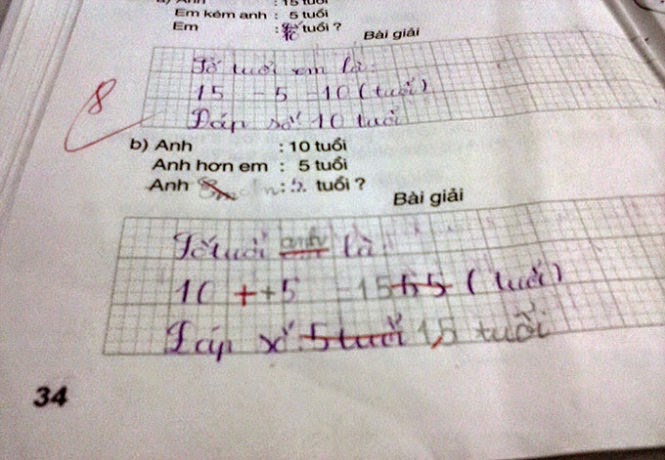 a) Anh : 15 tuổi
Em kém anh : 5 tuổi
Em : tuổi ?
Bài giải
Số tuổi em là:
15 - 5 = 10 (tuổi)
Đáp số 10 tuổi
8
b) Anh : 10 tuổi
Anh hơn em : 5 tuổi
Anh : tuổi ?
Bài giải
Số tuổi anh là
10 + + 5 = 15 (tuổi)
Đáp số: 5 tuổi 15 tuổi
34